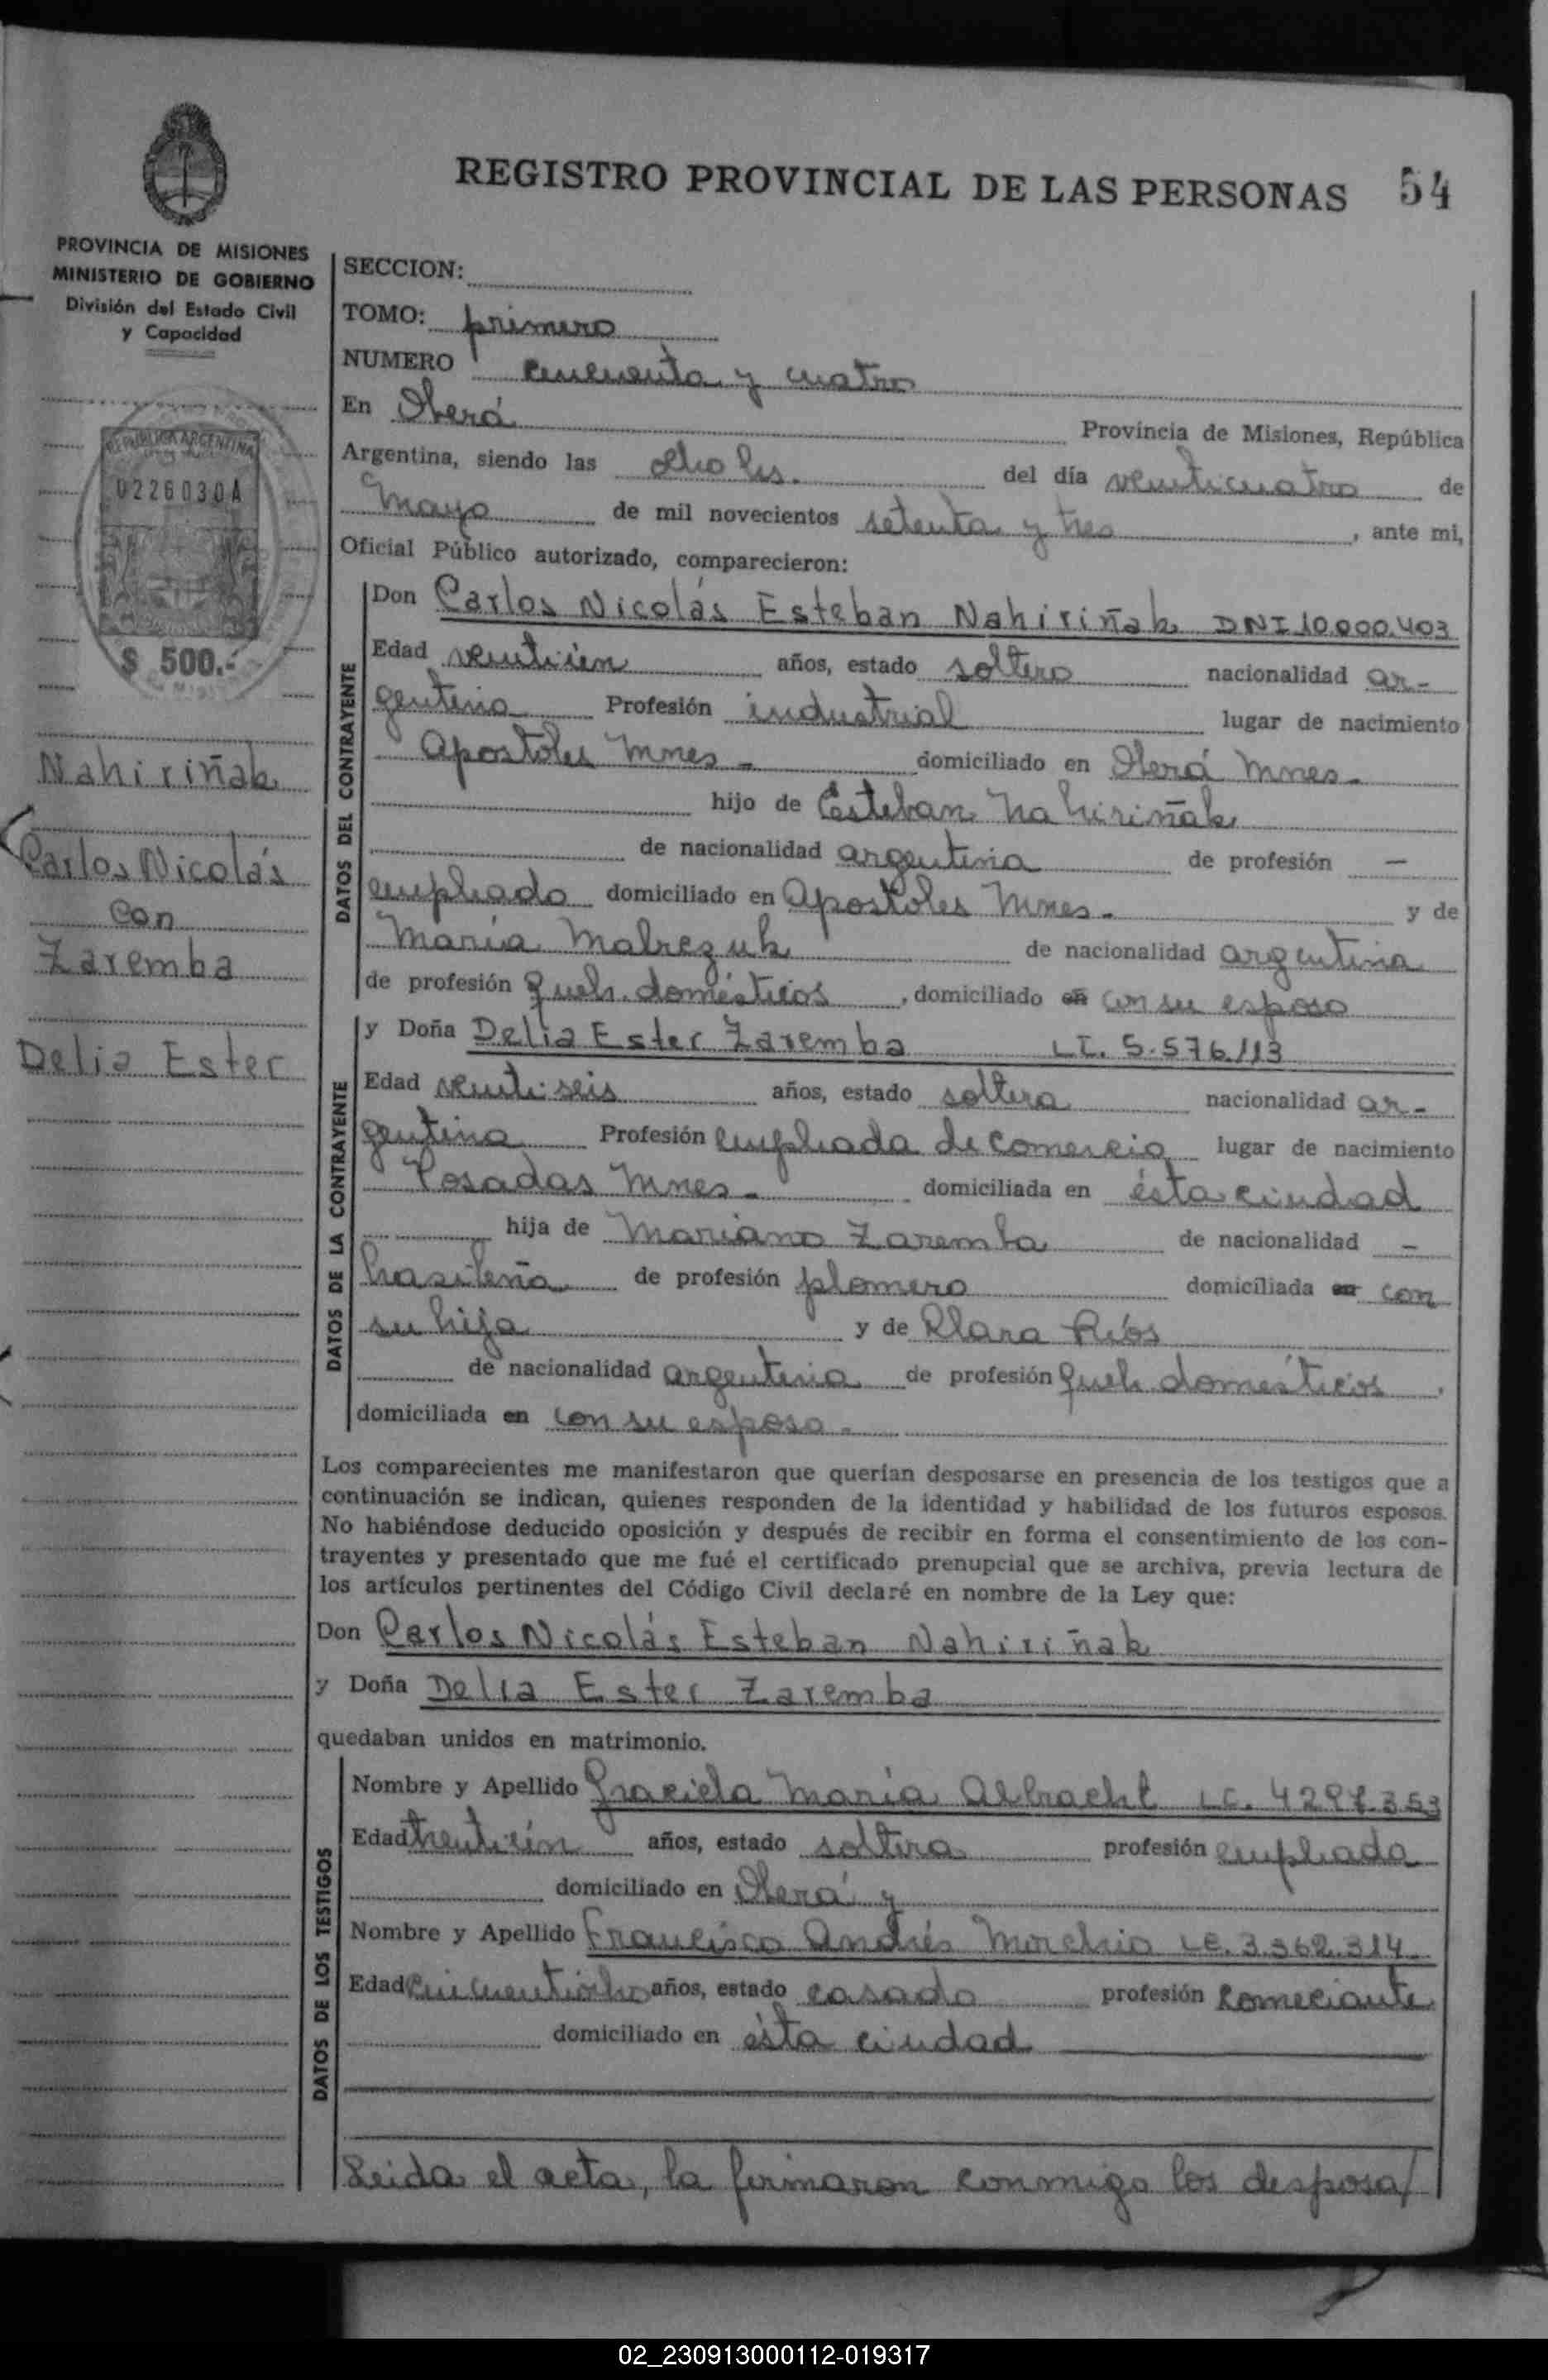 REGISTRO PROVINCIAL DE LAS PERSONAS 54
PROVINCIA DE MISIONES
MINISTERIO DE GOBIERNO
División del Estado Civil
y Capacidad
REPUBLICA ARGENTINA
0226030A
$ 500.-
Nahiriñak
Carlos Nicolás
con
Zaremba
Delia Ester
SECCION:
TOMO: primero
NUMERO cincuenta y cuatro
En Oberá Provincia de Misiones, República
Argentina, siendo las ocho hs. del día veinticuatro de
Mayo de mil novecientos setenta y tres, ante mi,
Oficial Público autorizado, comparecieron:
DATOS DEL CONTRAYENTE
Don Carlos Nicolás Esteban Nahiriñak DNI 10.000.403
Edad ventiún años, estado soltero nacionalidad ar-
gentina Profesión industrial lugar de nacimiento
Apostoles Mnes - domiciliado en Oberá Mnes -
hijo de Esteban Nahiriñak
de nacionalidad argentina de profesión -
empleado domiciliado en Apostoles Mnes - y de
María Malrezuk de nacionalidad argentina
de profesión queh. domésticos, domiciliado en con su esposo
DATOS DE LA CONTRAYENTE
y Doña Delia Ester Zaremba LC. 5.576.113
Edad ventiseis años, estado soltera nacionalidad ar-
gentina Profesión empleada de comercio lugar de nacimiento
Posadas Mnes - domiciliada en ésta ciudad
hija de Mariano Zaremba de nacionalidad -
brasileña de profesión plomero domiciliada en con
su hija y de Clara Ríos
de nacionalidad argentina de profesión queh. domésticos,
domiciliada en con su esposo -
Los comparecientes me manifestaron que querían desposarse en presencia de los testigos que a
continuación se indican, quienes responden de la identidad y habilidad de los futuros esposos.
No habiéndose deducido oposición y después de recibir en forma el consentimiento de los con-
trayentes y presentado que me fué el certificado prenupcial que se archiva, previa lectura de
los artículos pertinentes del Código Civil declaré en nombre de la Ley que:
Don Carlos Nicolás Esteban Nahiriñak
y Doña Delia Ester Zaremba
quedaban unidos en matrimonio.
DATOS DE LOS TESTIGOS
Nombre y Apellido Graciela María Albracht LC. 4297.353
Edad trentiún años, estado soltera profesión empleada
domiciliado en Oberá y
Nombre y Apellido Francisco Andrés Morchio LE. 3.362.314
Edad cincuentiocho años, estado casado profesión comerciante
domiciliado en ésta ciudad
Leida el acta, la firmaron conmigo los desposa/
02_230913000112-019317